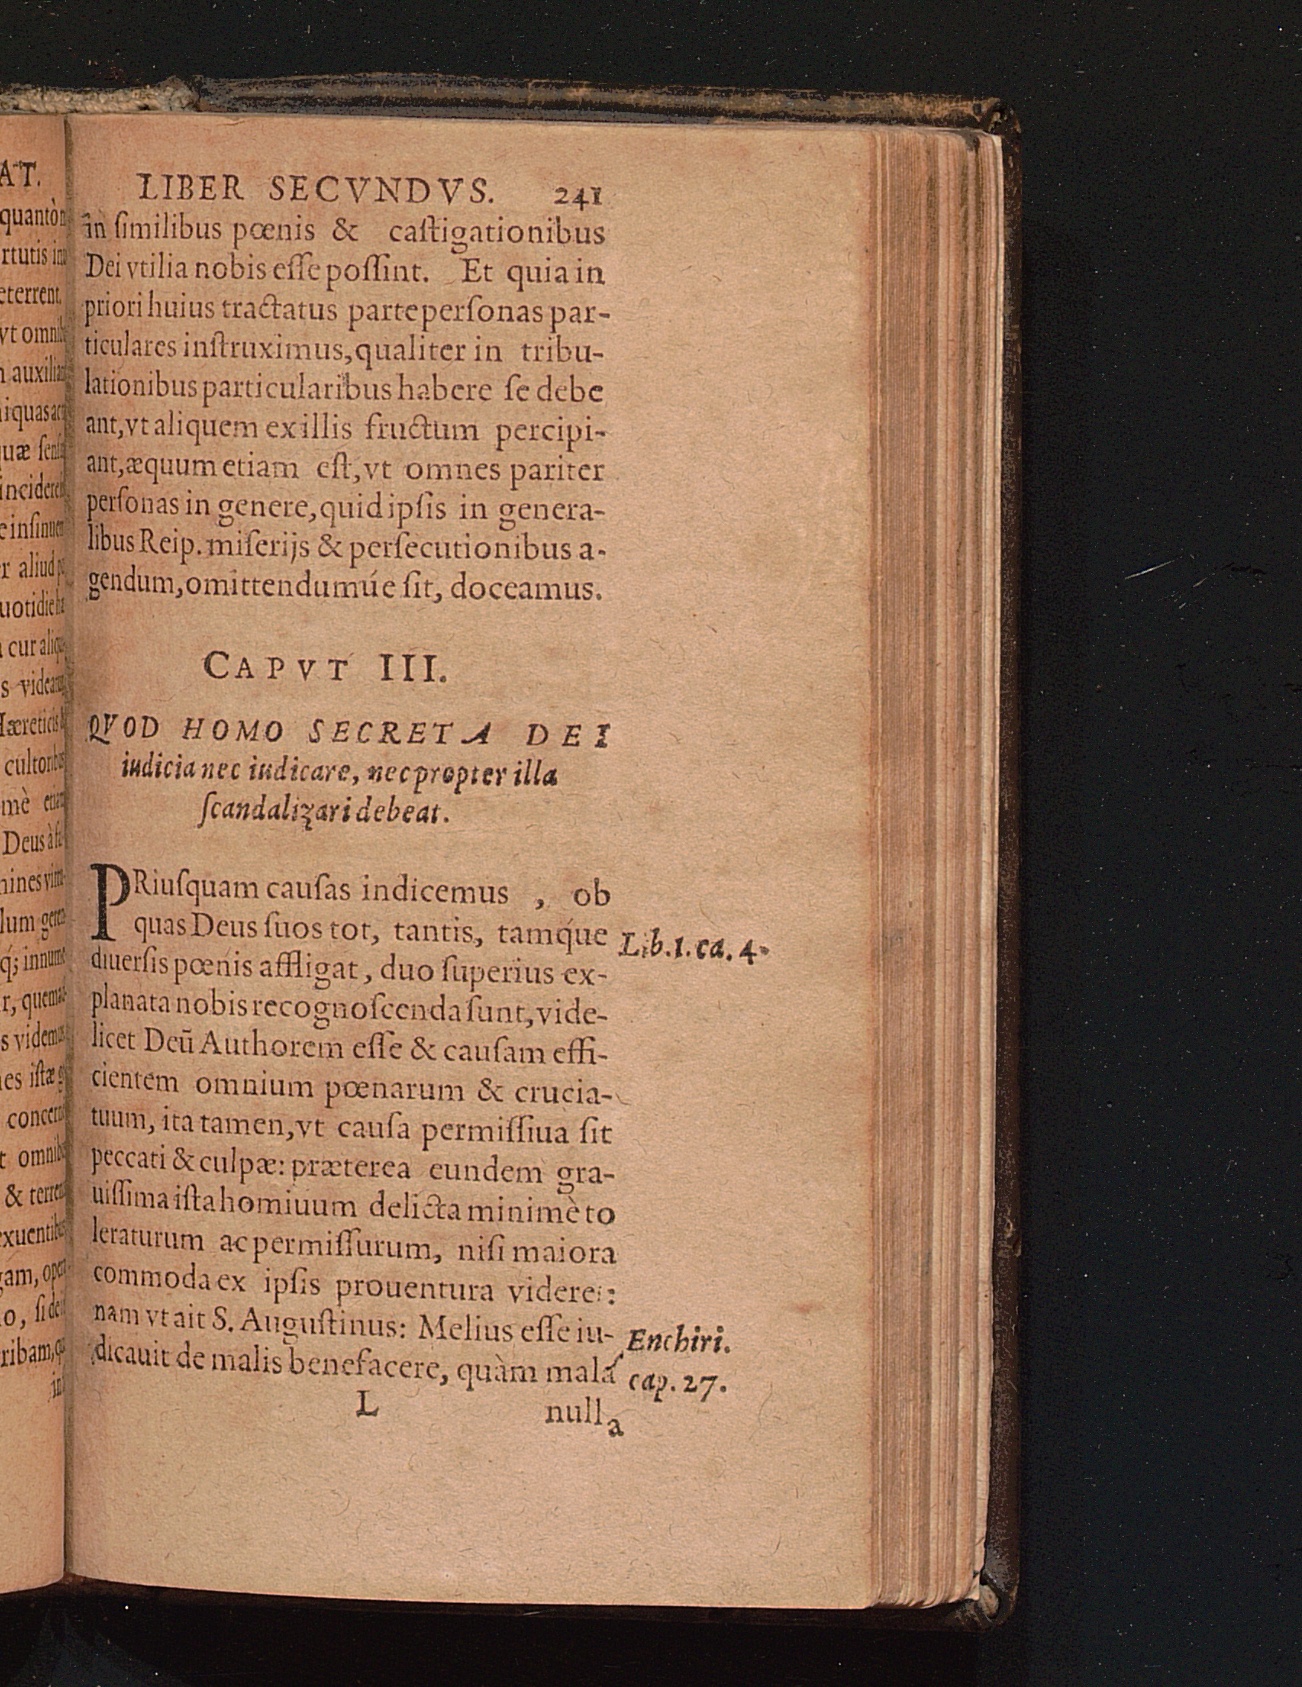 AT.
quantò
rtutis in
eterrent,
vt omni
auxilia
iquas
uæ
incidere
e insinu
r aliud
uotidie
cur aliq
s videa
Hæretici
cultori
mè
Deus à
ines
lum
q; innum
r, quem
s videm
es istæ
concer
t omnib
& terre
exuentib
gam,
o, si
ribam,
in
LIBER SECVNDVS. 241
in ſimilibus pœnis & caſtigationibus
Dei vtilia nobis eſſe poſſint. Et quia in
priori huius tractatus parte perſonas par-
ticulares inſtruximus, qualiter in tribu-
lationibus particularibus habere ſe debe
ant, vt aliquem ex illis fructum percipi-
ant, æquum etiam eſt, vt omnes pariter
perſonas in genere, quid ipſis in genera-
libus Reip. miſerijs & perſecutionibus a-
gendum, omittendumúe ſit, doceamus.
CAPVT III.
QVOD HOMO SECRETA DEI
iudicia nec iudicare, nec propter illa
ſcandalizari debeat.
PRiuſquam cauſas indicemus , ob
quas Deus ſuos tot, tantis, tamq́ue
diuerſis pœnis affligat, duo ſuperius ex-
planata nobis recognoſcenda ſunt, vide-
licet Deū Authorem eſſe & cauſam effi-
cientem omnium pœnarum & crucia-
tuum, ita tamen, vt cauſa permiſſiua ſit
peccati & culpæ: præterea eundem gra-
uiſſima iſta homiuum delicta minimè to
leraturum ac permiſſurum, niſi maiora
commoda ex ipſis prouentura videret:
nam vt ait S. Auguſtinus: Melius eſſe iu-
dicauit de malis benefacere, quàm mala
L nulla
Lib. 1. ca. 4.
Enchiri.
cap. 27.